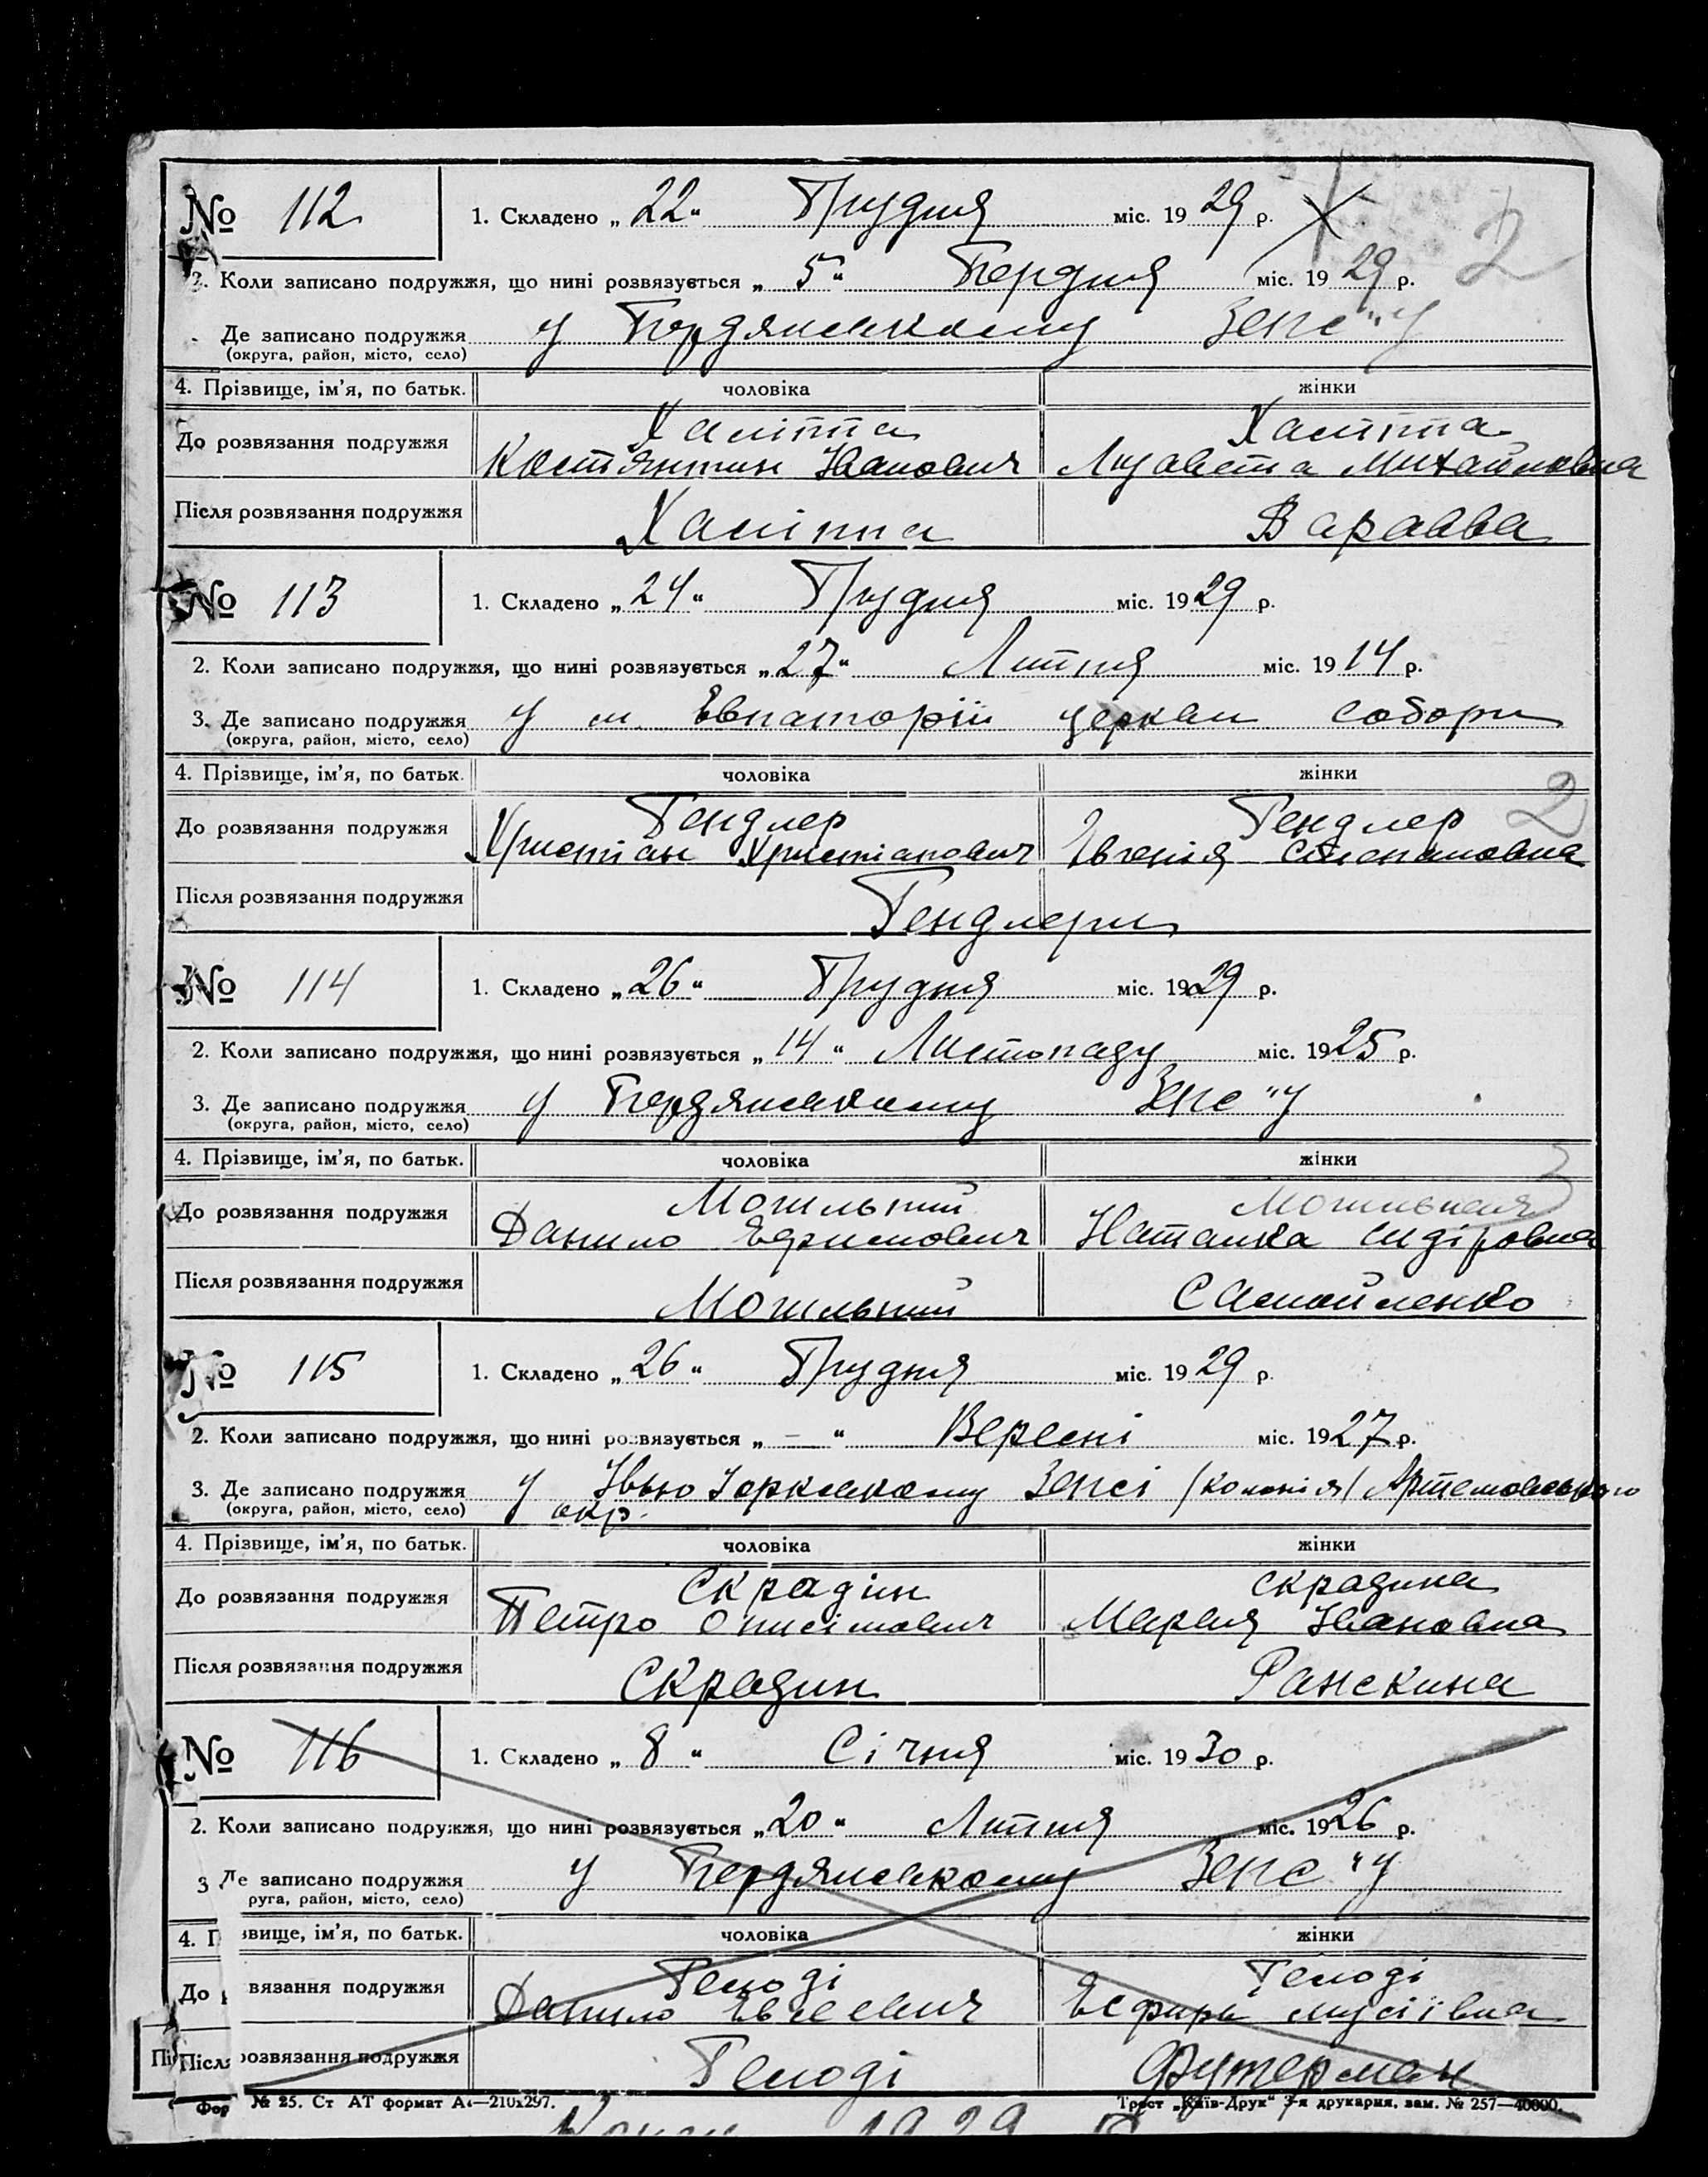 № 112 1. Складено „22“ Грудня міс. 1929 р.
2. Коли записано подружжя, що нині розвязується „5“ міс. 1929 р. 2
Де записано подружжя у Бердянському Загс"у
(округа, район, місто, село)
4. Прізвище, ім'я, по батьк. чоловіка жінки
До розвязання подружжя Халіппа Халіппа
Костянтин Іванович Лизавета Михайловна
Після розвязання подружжя Халіппа Варавва
№ 113 1. Складено „24“ Грудня міс. 1929 р.
2. Коли записано подружжя, що нині розвязується „27“ Липня міс. 1914 р.
3. Де записано подружжя у м. Евпаторії церкви собори
(округа, район, місто, село)
4. Прізвище, ім'я, по батьк. чоловіка жінки 2
До розвязання подружжя Гендлер Гендлер
Христіан Христіанович Євгенія Степановна
Після розвязання подружжя Гендлери
№ 114 1. Складено „26“ Грудня міс. 1929 р.
2. Коли записано подружжя, що нині розвязується „14“ Листопаду міс. 1925 р.
3. Де записано подружжя у Бердянському Загс"у
(округа, район, місто, село)
4. Прізвище, ім'я, по батьк. чоловіка жінки
До розвязання подружжя Могильний Могильная
Данило Ефимович Наталка Сидіровна
Після розвязання подружжя Могильний Самойленко
№ 115 1. Складено „26“ Грудня міс. 1929 р.
2. Коли записано подружжя, що нині розвязується „—“ Вересні міс. 1927 р.
3. Де записано подружжя у Нью Йоркському Загсі /колонія/ Артемовського
(округа, район, місто, село) окр.
4. Прізвище, ім'я, по батьк. чоловіка жінки
До розвязання подружжя Скрадін Скрадина
Петро Онисімович Мария Івановна
Після розвязання подружжя Скрадин Ранскина
№ 116 1. Складено „8“ Січня міс. 1930 р.
2. Коли записано подружжя, що нині розвязується „20“ Липня міс. 1926 р.
3 Де записано подружжя у Бердянському Загс"у
руга, район, місто, село)
4. П звище, ім'я, по батьк. чоловіка жінки
До р звязання подружжя Гемоді Гемоді
Данило Евсеевич Есфирь Мусіївна
Після розвязання подружжя Гемоді Футерман
Фор № 25. Ст АТ формат А4—210х297. Трест „Київ-Друк“ 3-я друкарня, зам. № 257—40000.
1929